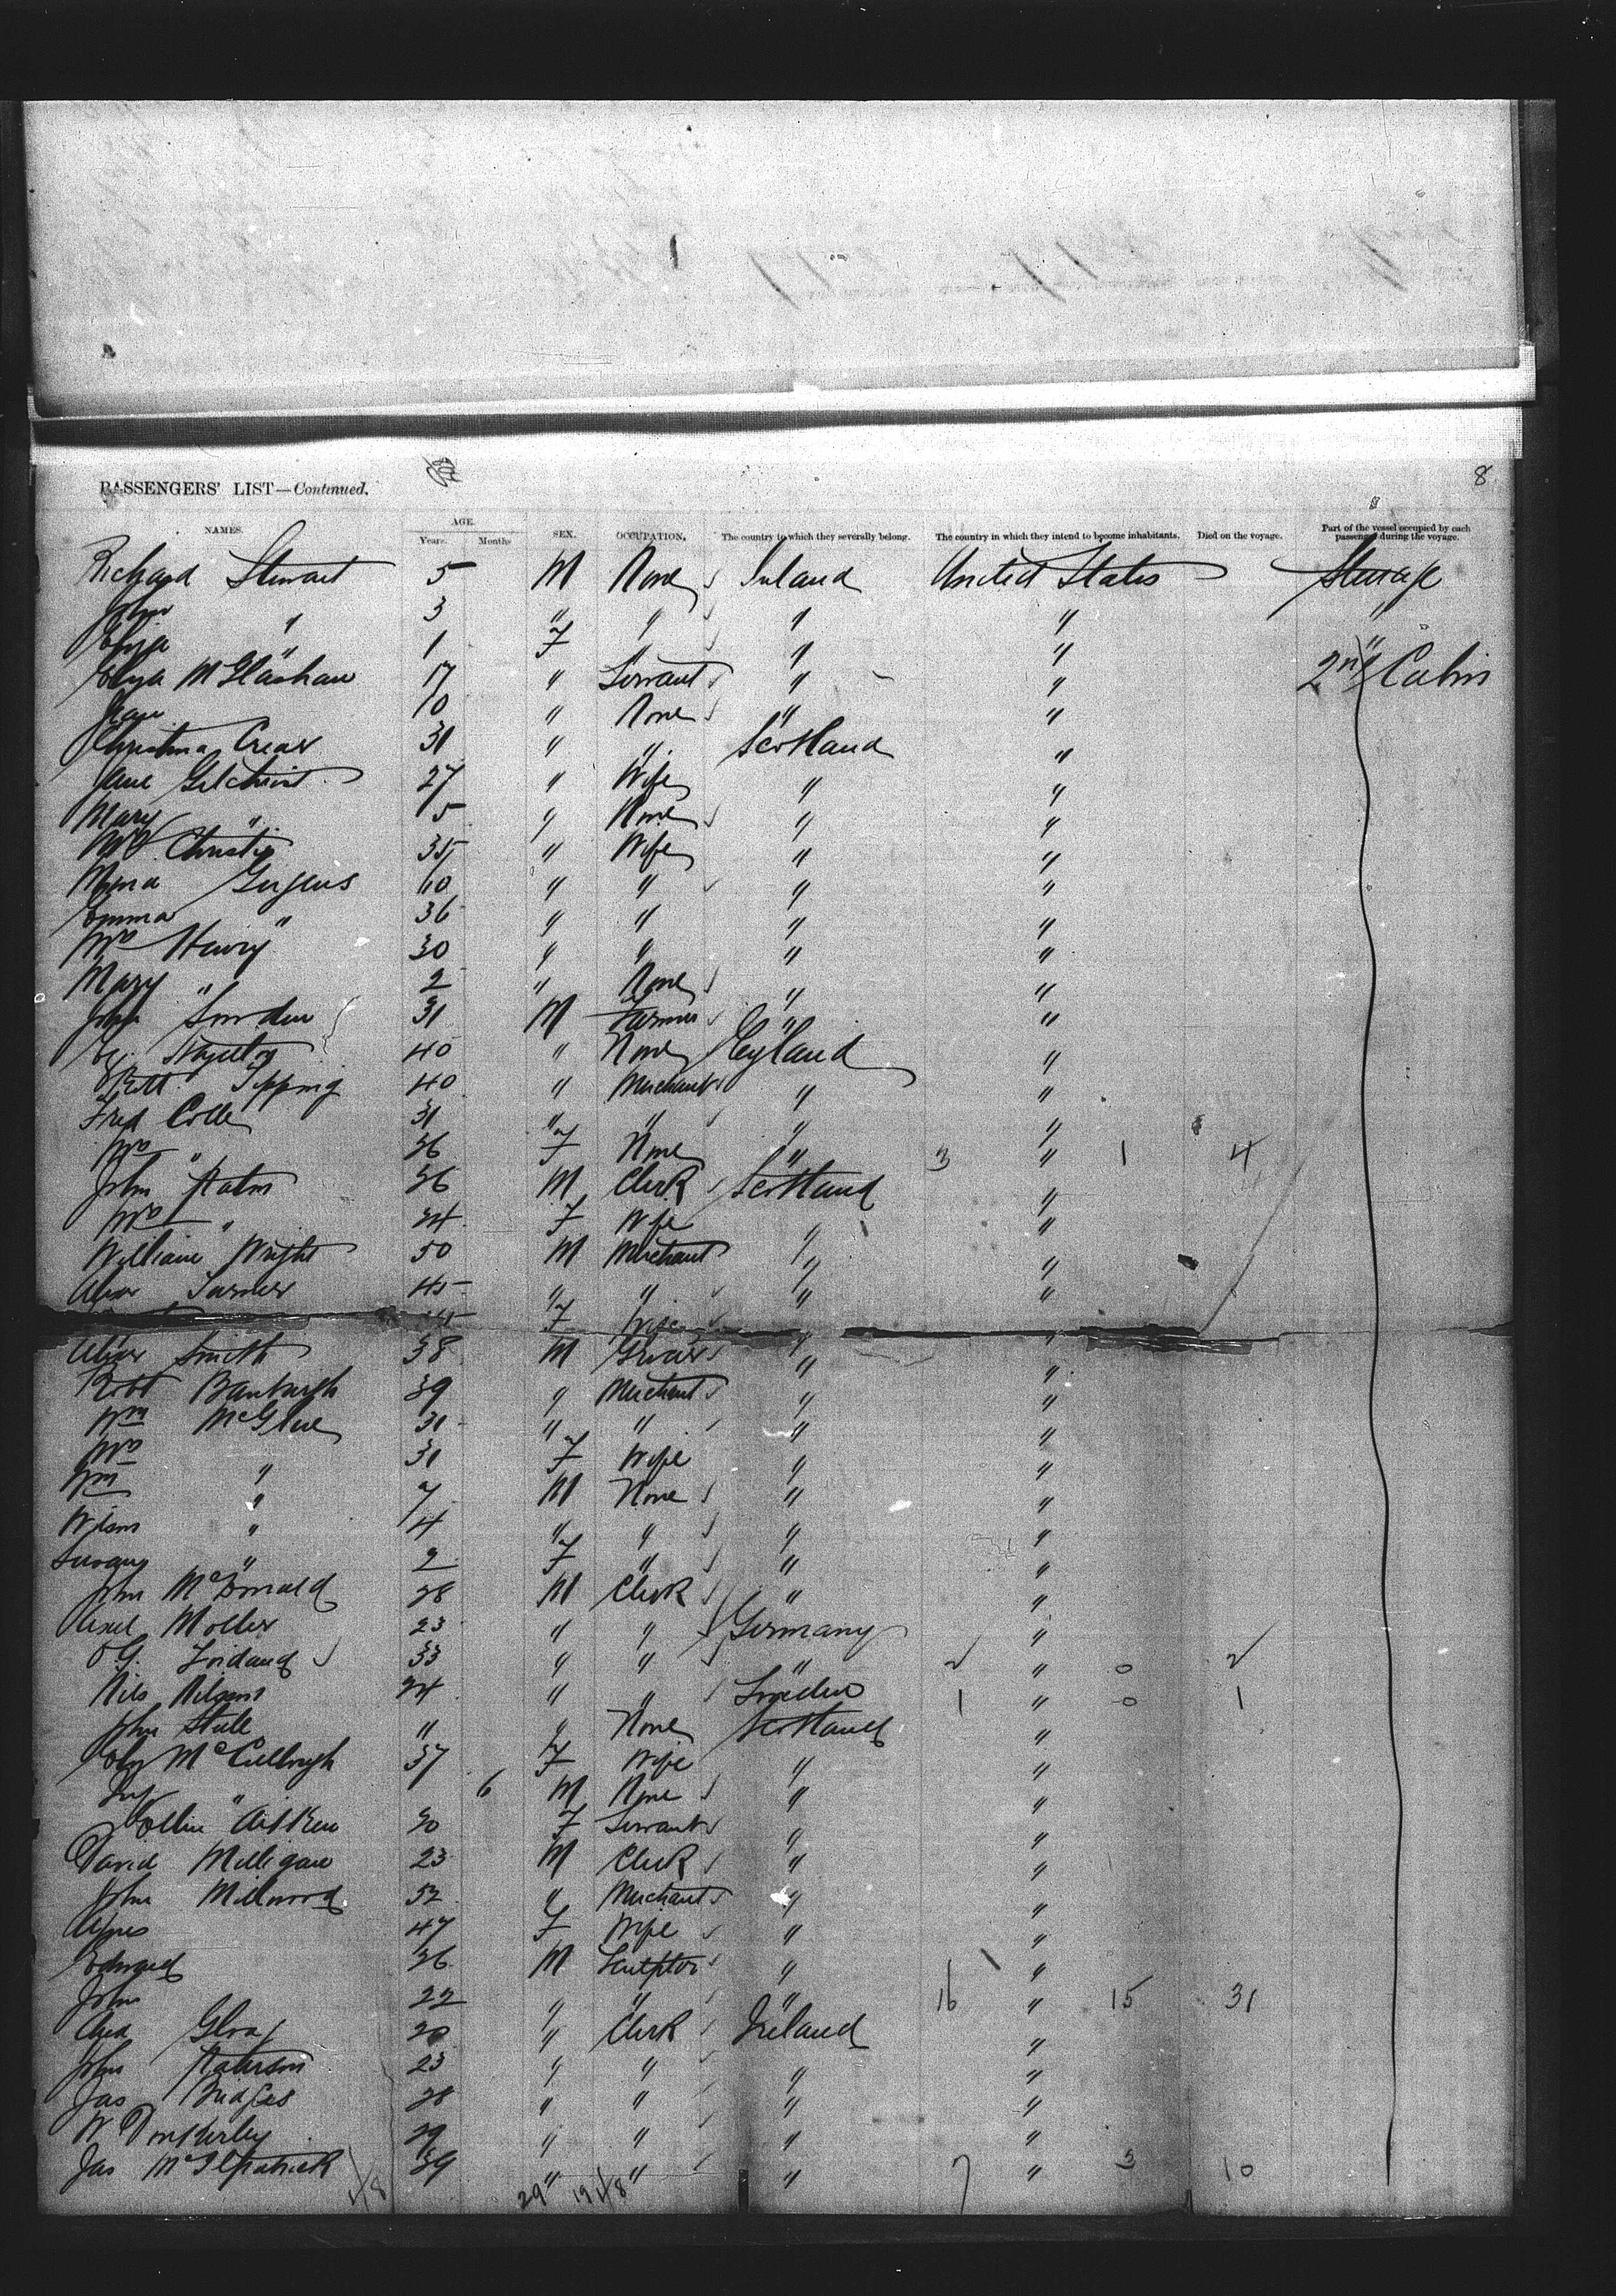 8
PASSENGERS' LIST—Continued.
NAMES. AGE. Years. Months SEX. OCCUPATION. The country to which they severally belong. The country in which they intend to become inhabitants. Died on the voyage. Part of the vessel occupied by each passenger during the voyage.
Richard Stewart 5 M None Ireland United States Steerage
John " 3 " " " " "
Eliza " 1 F " " " "
Eliza McGlashan 17 " Servant " " 2nd Cabin
10 " None " "
Christina Crear 31 " " Scotland "
Jane Gilchrist 27 " Wife " "
Mary " 5 " None " "
Mrs Christie 35 " Wife " "
60 " " " "
Emma " 36 " " " "
Mrs Henry 30 " " " "
Mary " 2 " None " "
John 31 M Farmer " "
40 " None England "
Robt Tipping 40 " Merchant " "
Fred Cole 31 " " " "
Mrs " 36 F None " 3 " 1 4
John Paton 36 M Clerk Scotland "
Mrs " 34 F Wife " "
William Wright 50 M Merchant " "
Alex Turner 45 " " " "
F Wife " "
Alex Smith 38 M Grocer " "
Robt 39 " Merchant " "
Wm McGlue 31 " " " "
Mrs " 31 F Wife " "
Wm " 7 M None " "
Wilson " 4 " " " "
" 2 F " " "
John McDonald 28 M Clerk " "
Axel Moller 23 " " Germany "
33 " " " 2 " 0 2
Nils Nilsson 24 " " Sweden 1 " 0 1
John Steele 11 " None Scotland "
McCullough 37 F Wife " "
Inf " 6 M None " "
Aitken 30 F Servant " "
David Milligan 23 M Clerk " "
John Millwood 52 " Merchant " "
Agnes 47 F Wife " "
Edward 26 M Sculptor " "
John 22 " " " 16 " 15 31
20 " Clerk Ireland "
John Paterson 23 " " " "
Jas Bridges 28 " " " "
W 29 " " " "
Jas McIlpatrick 39 " " " 7 " 3 10
29 19